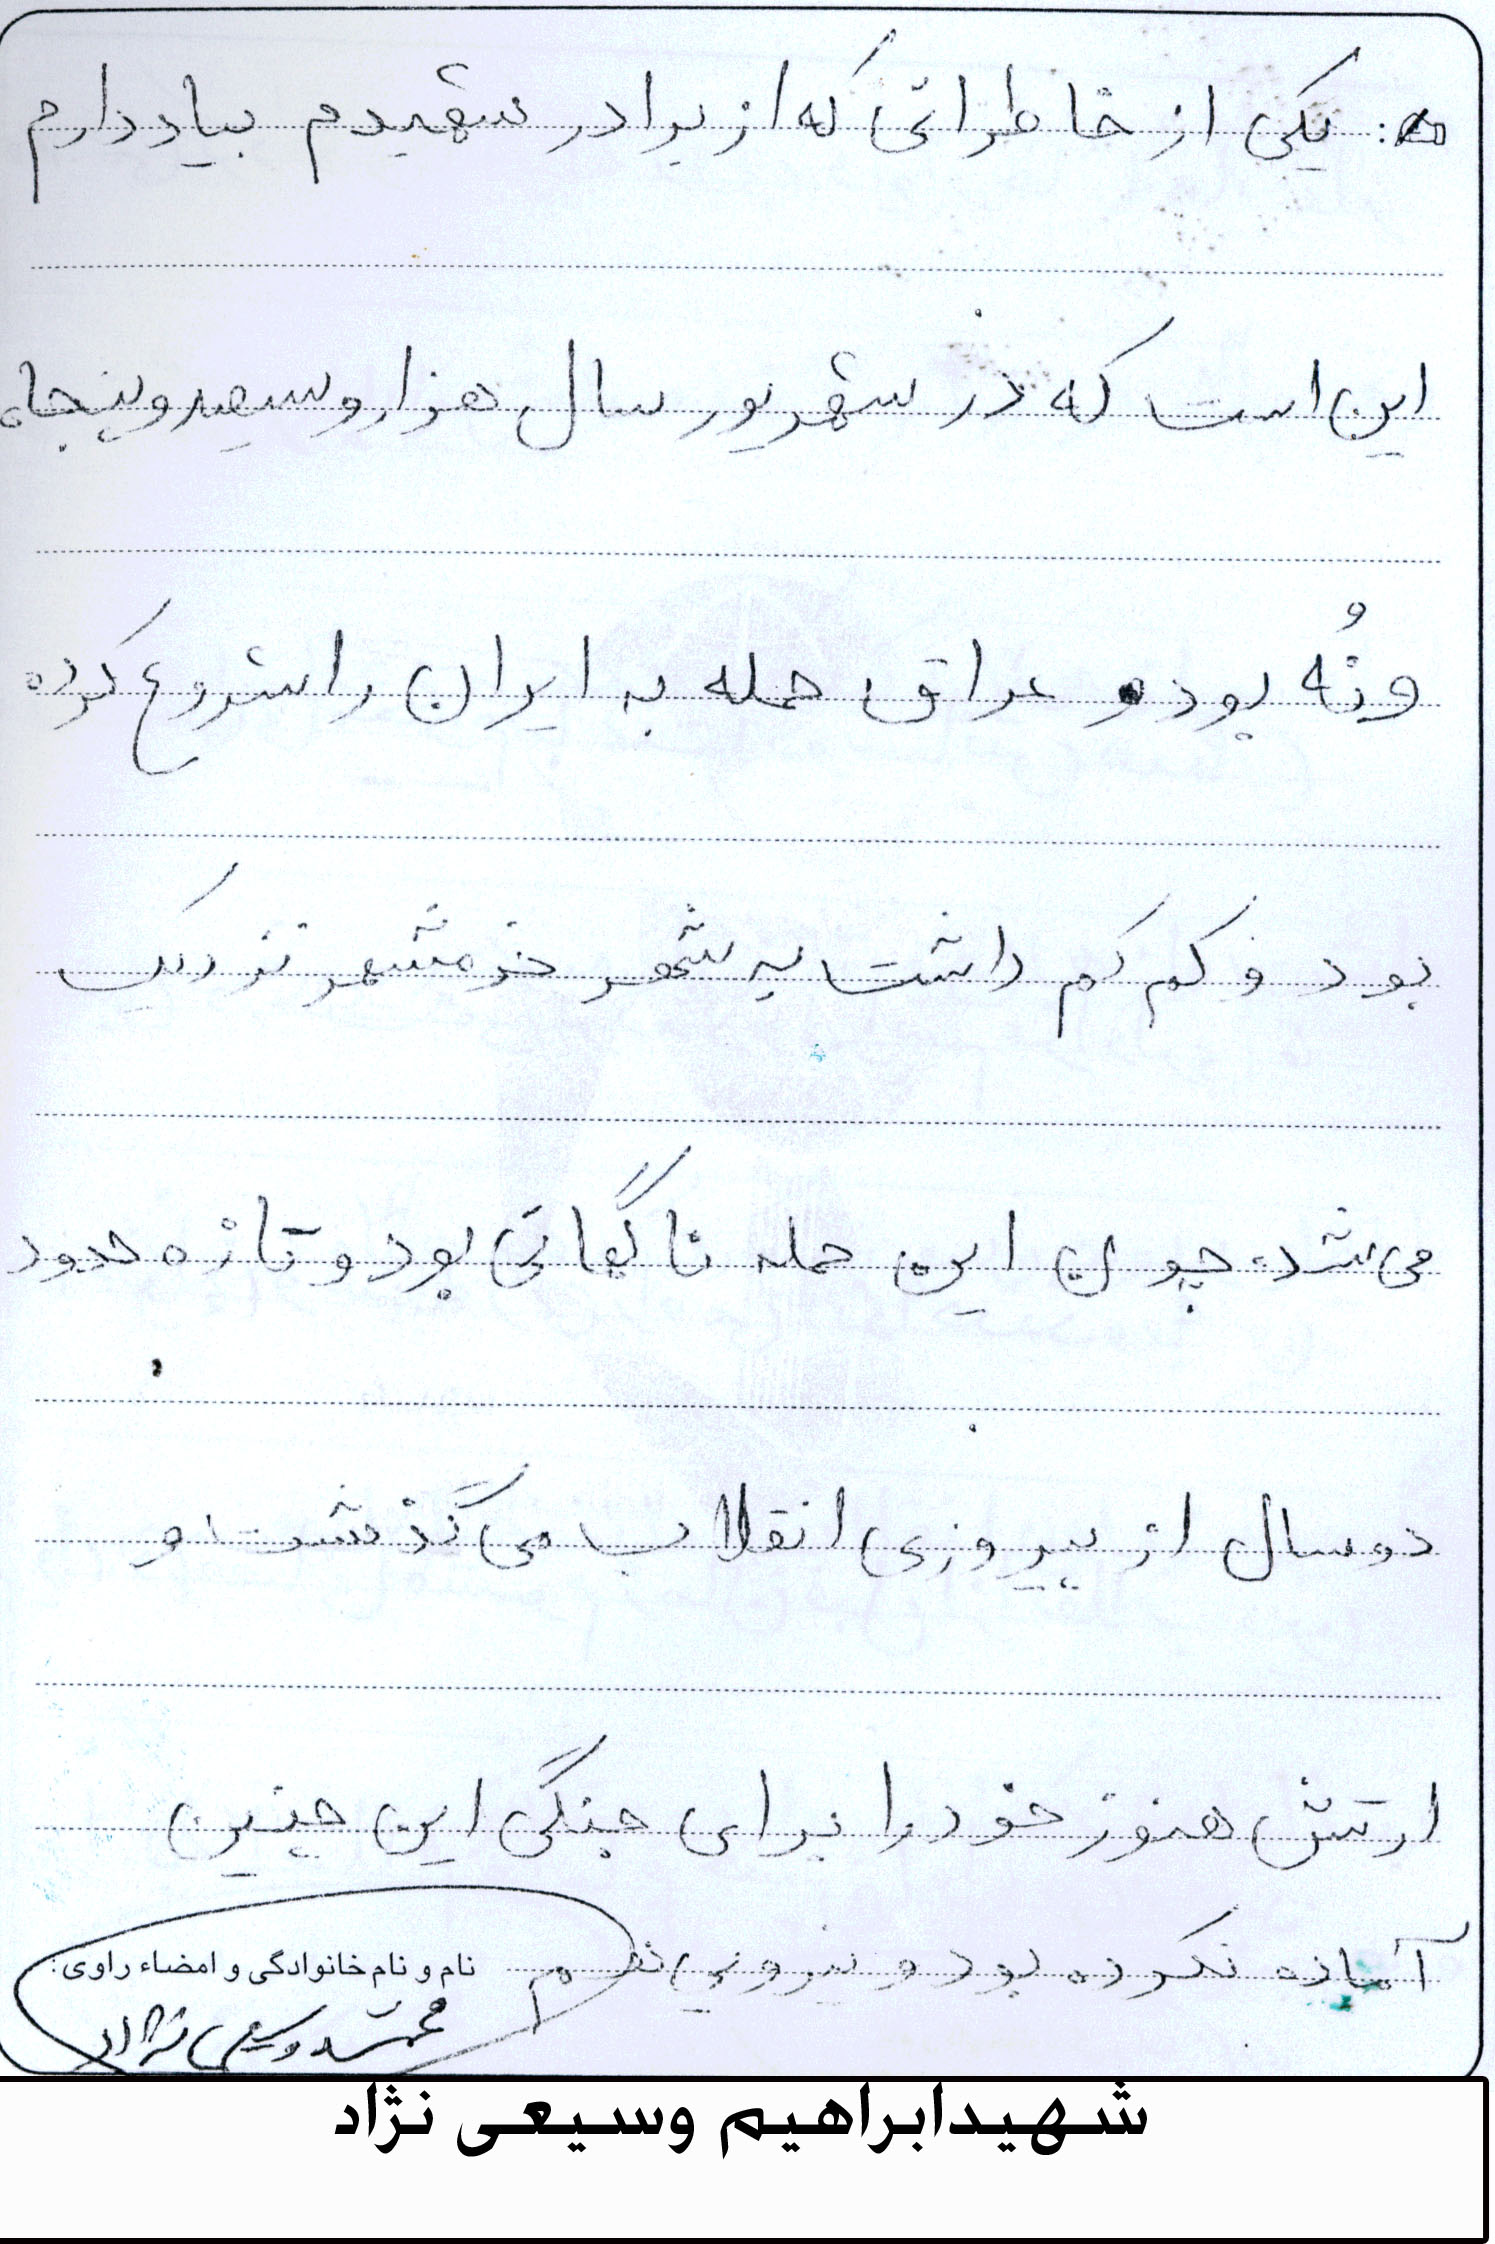 : یکی از خاطراتی که از برادر شهیدم بیاد دارم
این است که در شهریور سال هزار و سیصد و پنجاه
و نُه بود و عراق حمله به ایران را شروع کرده
بود و کم کم داشت به شهر خرمشهر نزدیک
می شد، چون این حمله ناگهانی بود و تازه حدود
دو سال از پیروزی انقلاب می گذشت و
ارتش هنوز خود را برای جنگی این چنین
آماده نکرده بود و نیرویی هم
نام و نام خانوادگی و امضاء راوی:
وسیعی نژاد
شهیدابراهیم وسیعی نژاد